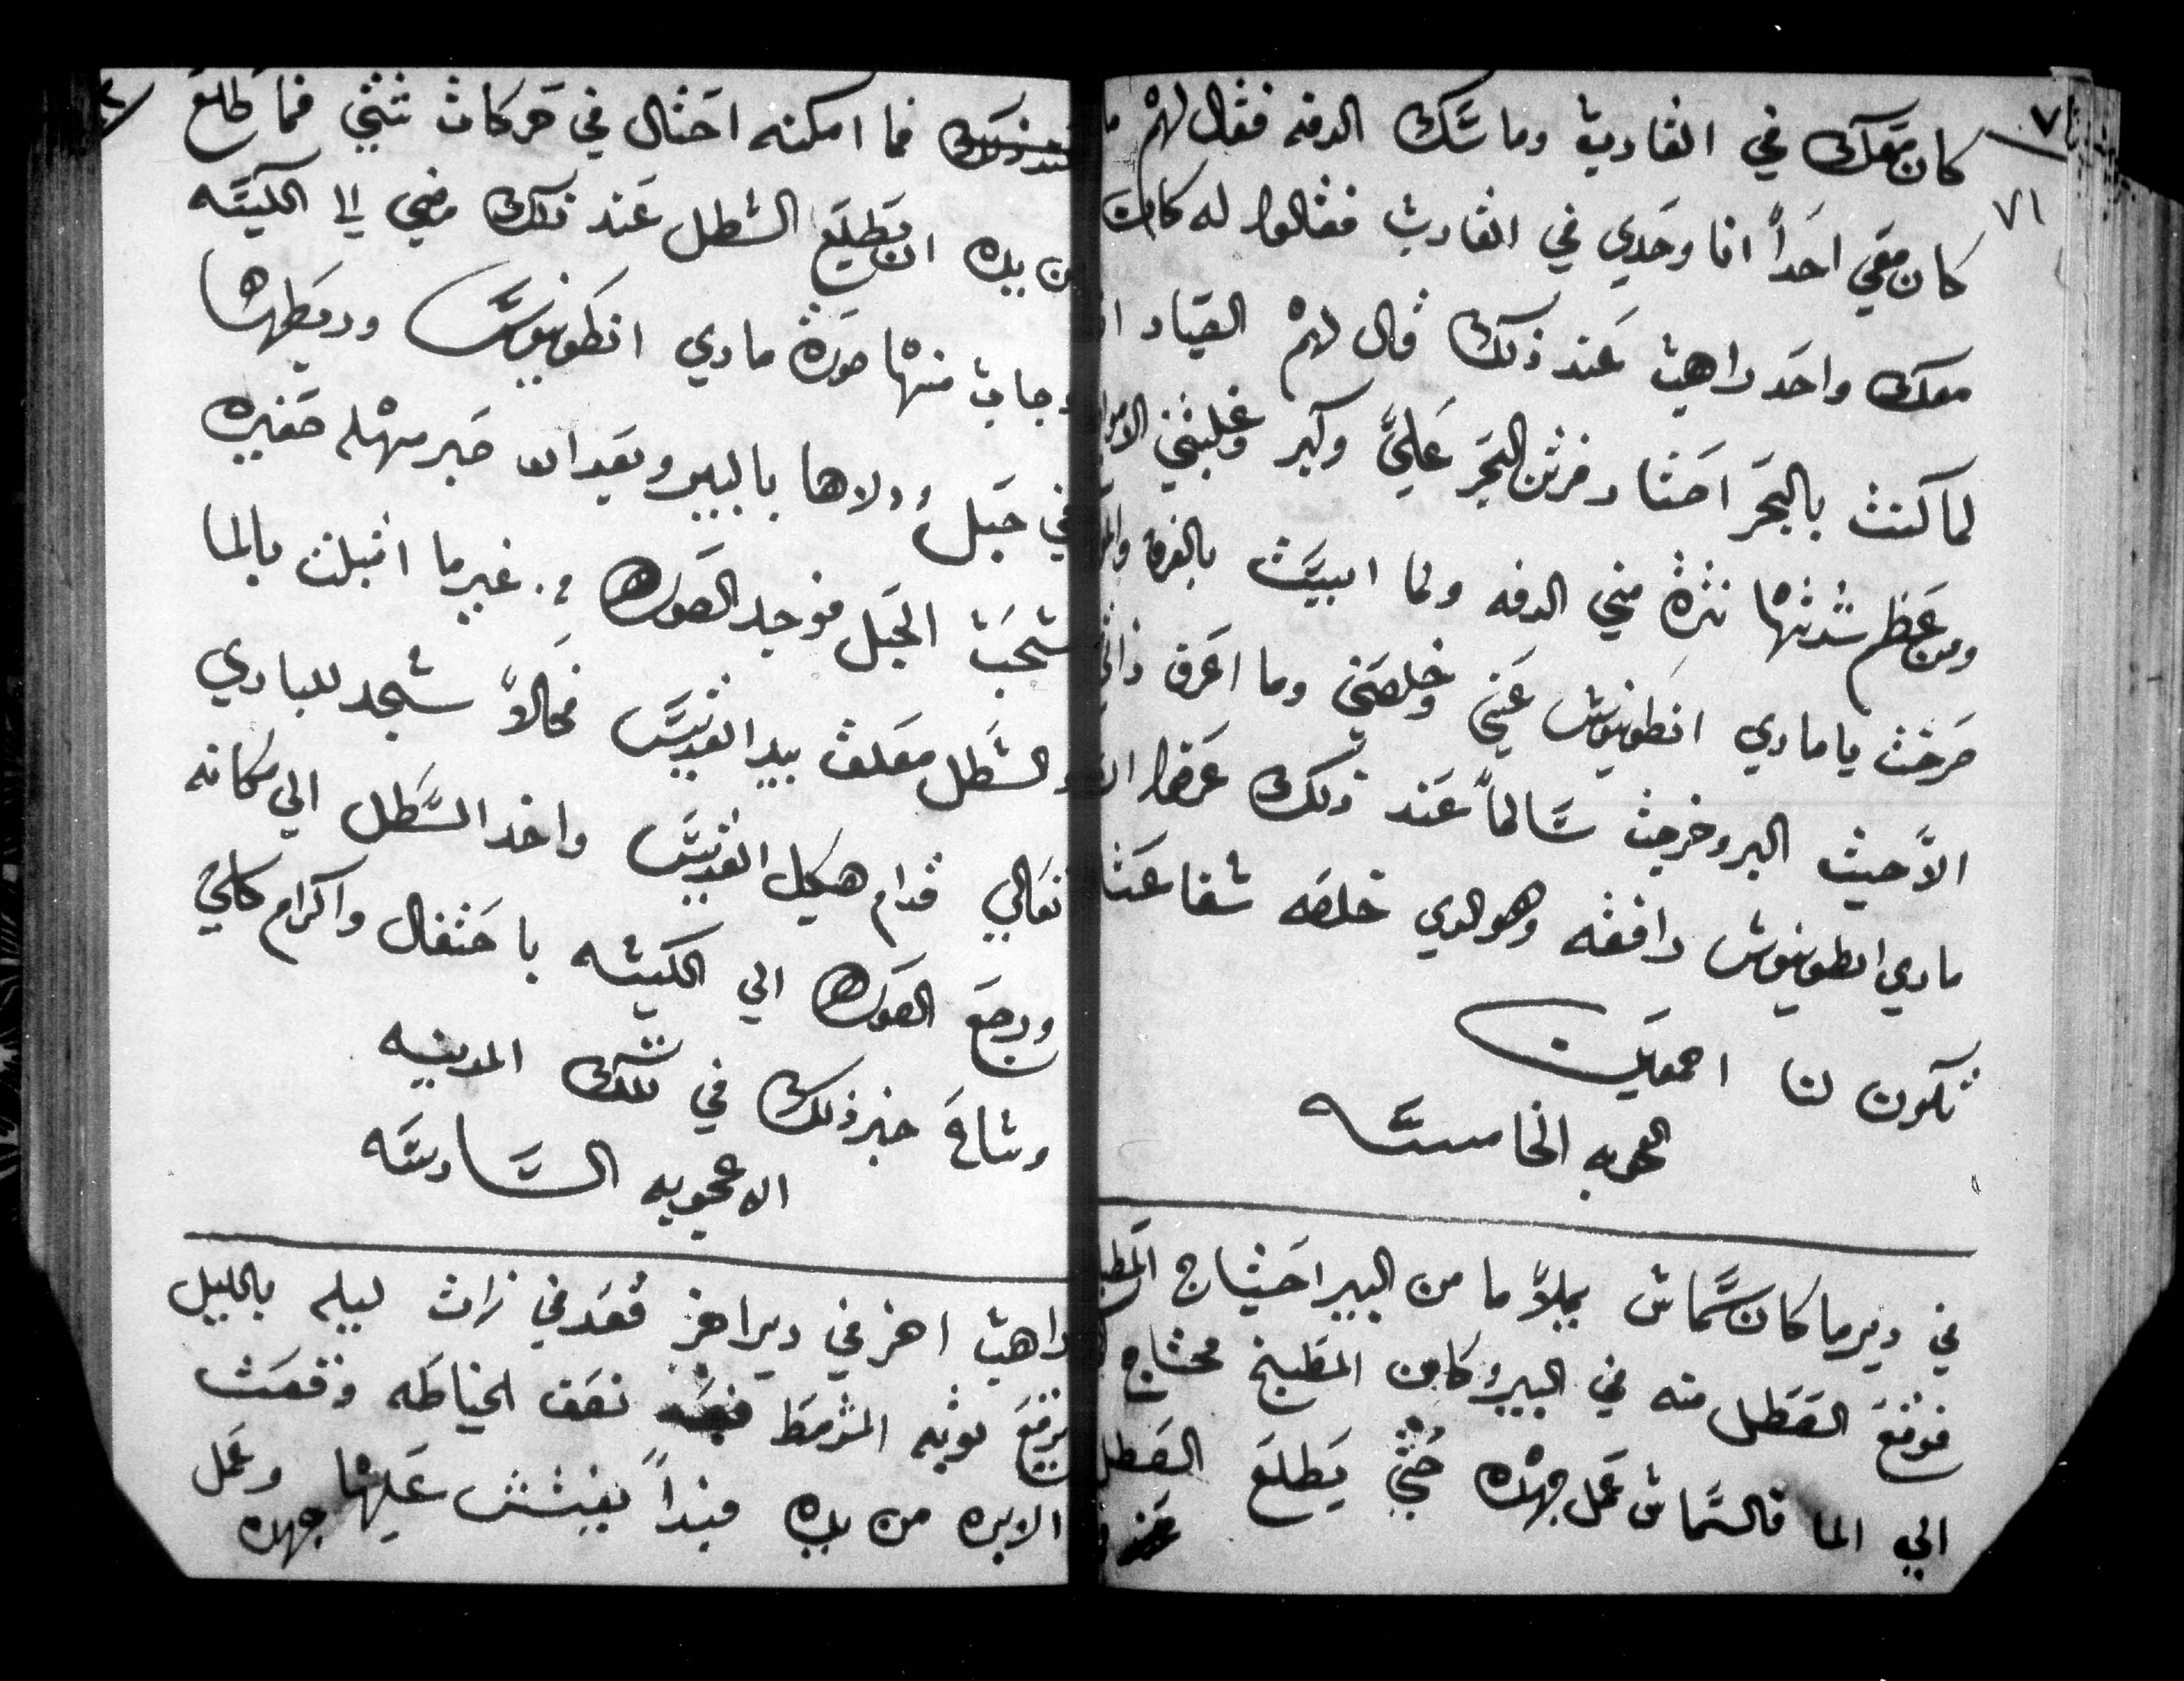 ٧١
كان معك في القارب وماسك الدفه فقال لهم ما
كان معي احداً انا وحدي في القارب فقالوا له كان
معك واحد راهب عند ذلك قال لهم الصياد
لما كنت بالبحر احتار فرتن البحر عليَّ وكبر وغلبتني
ومن عظم شدتها نترة مني الدفه ولما ابيت بالغرق
صرخت يا ماري انطونيوس عني وخلصني وما اعرف
الاَّ حيث البر وخرجت سالماً عند ذلك عرفوا ان
ماري انطونيوس رافقه وهو الدي خلصه شفاعتا
تكون لنا اجمعين
العجوبه الخامسه
في دير ما كان شماس يملاَ ما من البير احتياج
فوقع الصطل منه في البير وكان المطبخ محتاج
الي الما فالشماس عمل جهده حتي يطلع الصطل
فما امكنه احتال في حركات شتي فما طلع
من يده ان يطيلع السطل عند ذلك مضي الا الكنيسه
وجاب منها صورة ماري انطونيوس وربطها
في حبل ودلاها بالبير وبعد ان صبر مهله صغيره
سحب الحبل فوجد الصوره من غير ما انبلت بالما
والسطل معلق بيد القديس فحالاً سجد للباري
تعالي قدام هيكل القديس واخد السطل الي مكانه
ورجع الصوره الي الكنيسه باحتفال واكرام كلي
وشاع خبر ذلك في تلك المدينه
الاعجوبه السادسه
راهب اخر في دير اخر قعد في زات ليله بالليل
يرقع توبه المشرمط نصف الخياطه وقعت
الابره من يده فبدأ يفتش عليها وعمل
جهده